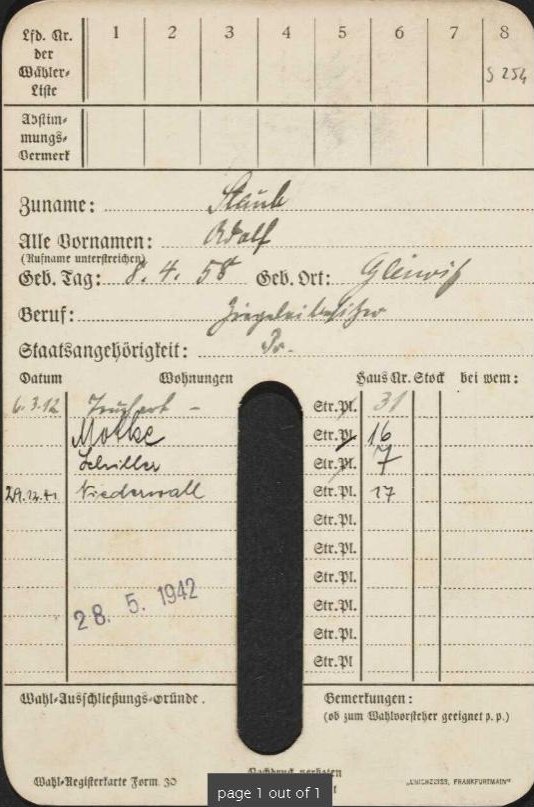 Lfd. Nr. der Wähler-Liste 1 2 3 4 5 6 7 8
S 254
Abstimmungs-Vermerk
Zuname: Staub
Alle Vornamen: Adolf
(Rufname unterstreichen)
Geb. Tag: 8. 4. 58 Geb. Ort: Gleiwitz
Beruf: Ziegeleibesitzer
Staatsangehörigkeit: Pr.
Datum Wohnungen Haus Nr. Stock bei wem:
6.3.12 Str. Pl. 31
Moltke Str. Pl. 16
Schiller Str. Pl. 7
29.12.41 Niederwall Str. Pl. 17
Str. Pl.
Str. Pl.
Str. Pl.
28. 5. 1942 Str. Pl.
Str. Pl.
Str. Pl
Wahl-Ausschließungs-Gründe. Bemerkungen:
(ob zum Wahlvorsteher geeignet p. p.)
Nachdruck verboten
Wahl-Registerkarte Form 30 FRANKFURTMAIN"
page 1 out of 1